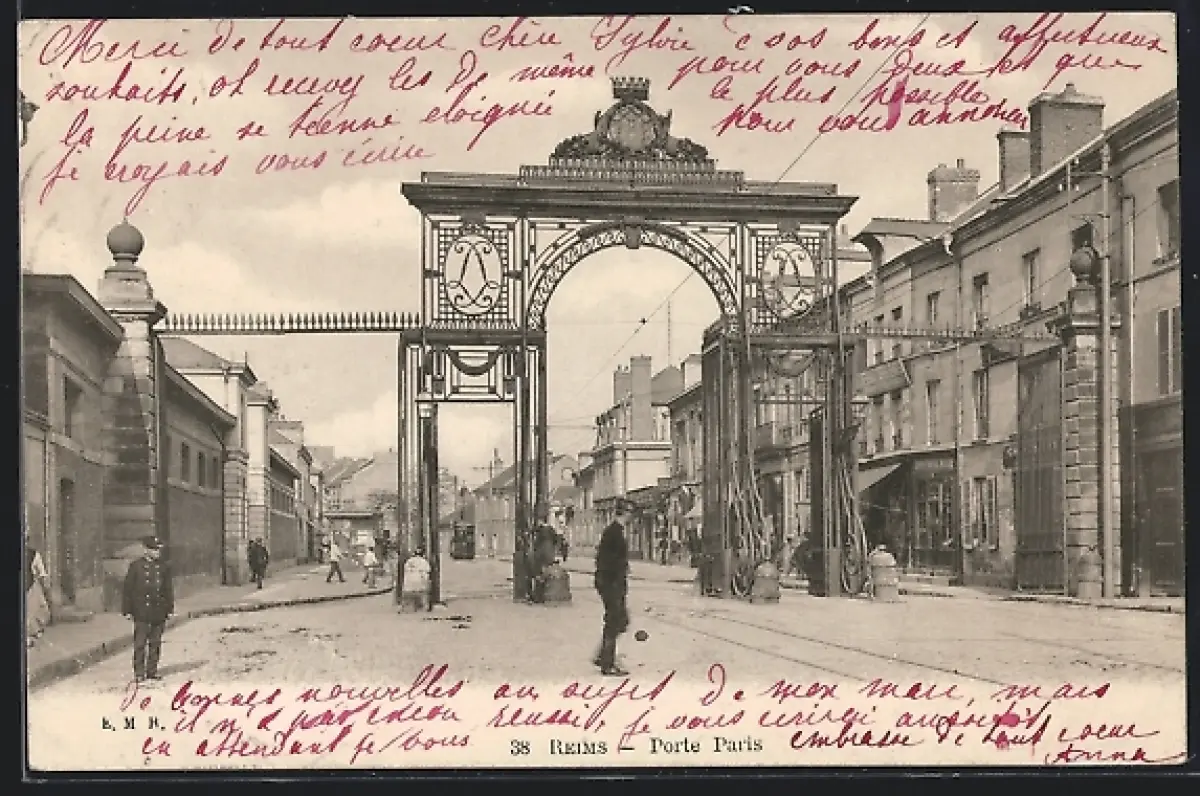 Merci de tout coeur chère Sylvie de vos bons et affectueux
souhaits, et recevez les de même pour vous deux et que
la peine se tienne eloignée le plus possible
je croyais vous écrire pour vous annoncer
de bonnes nouvelles au sujet de mon mari, mais
il n'a pas encore reussi, je vous écrirai aussitôt
en attendant je vous embrasse de tout coeur
Anna
E. M. R.
38 REIMS – Porte Paris